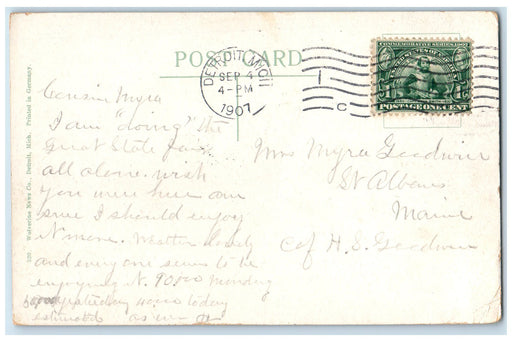 POST CARD
DETROIT, MICH.
SEP 4
4-PM
1907
1
C
COMMEMORATIVE SERIES 1907
POSTAGE ONE CENT
120 Wolverine News Co., Detroit, Mich. Printed in Germany.
Cousin Myra
I am "doing" the
Great State Fair
all alone. wish
you were here am
sure I should enjoy
it more. Weather lovely
and every one seems to be
enjoying it. 90,000 Monday
yesterday today
estimated as
Mrs Myra Goodwin
St Albans
Maine
c/o H. S. Goodwin